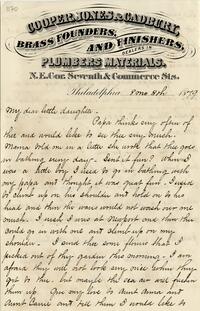 COOPER, JONES & CADBURY,
BRASS FOUNDERS,
AND FINISHERS,
DEALERS IN
PLUMBERS MATERIALS.
N.E. Cor. Seventh & Commerce Sts.
Philadelphia, 8 mo 8th 1879
My dear little daughter
Papa thinks very often of
thee and would like to see thee very much.
Mama told me in a letter she wrote that thee goes
in bathing every day. Isn't it fun? When I
was a little boy I used to go in bathing with
my papa and thought it was great fun. I used
to climb up on his shoulder and hold on to his
head and then the waves would not wash over me
much. I wish I was at Newport and then thee
could go in with me and climb up on my
shoulder. I send thee some flowers that I
picked out of thy garden this morning. I am
afraid they will not look very nice when they
get to thee, but maybe the sea air will freshen
them up. Give my love to Aunt Anna and
Aunt Carrie and tell them I would like to